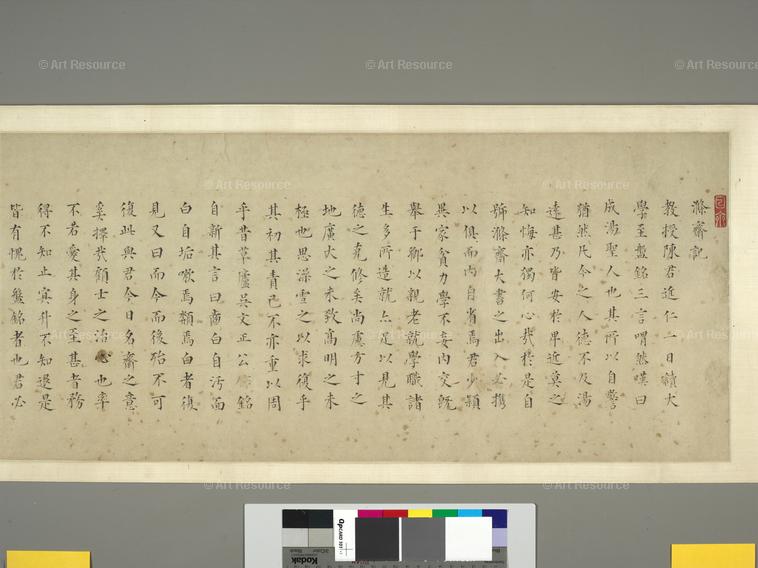 滌齋記
教授陳君近仁一日讀大
學至盤銘三言喟然嘆曰
成湯聖人也其所以自警
猶然凡今之人德不及湯
遠甚乃皆安於卑近莫之
知悔亦獨何心哉於是自
號滌齋大書之出入必携
以俱而內自省焉君少穎
異家貧力學不妄內交既
舉于鄉以親老就學職諸
生多所造就亦足以見其
德之克修矣尚慮方寸之
地廣大之未致高明之未
極也思澡雪之以求復乎
其初其責己不亦重以周
乎昔草廬吳文正公銘
自新其言曰面白自汚面
白自垢嗽焉颒焉白者復
見又曰而今而後殆不可
復此與君今日名齋之意
奚擇哉顧士之治心也率
不若愛其身之至甚者務
得不知止冥升不知退是
皆有愧於盤銘者也君必
© Art Resource
© Art Resource
© Art Resource
© Art Resource
© Art Resource
© Art Resource
© Art Resource
© Art Resource
© Art Resource
© Art Resource
Kodak